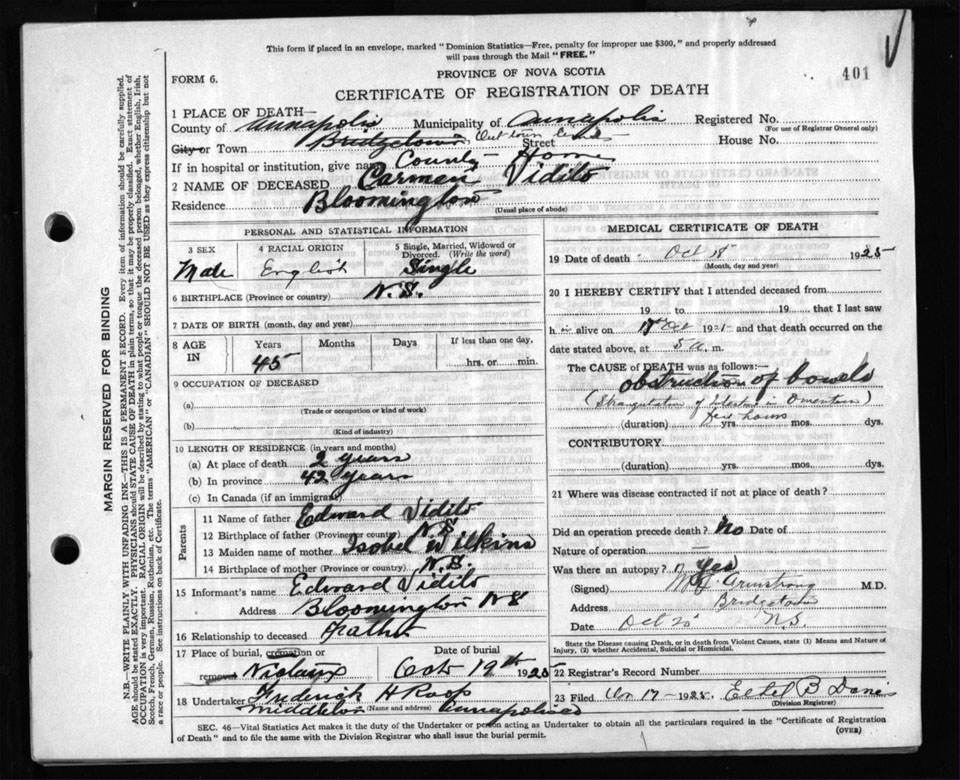 This form if placed in an envelope, marked "Dominion Statistics—Free, penalty for improper use $300," and properly addressed
will pass through the Mail "FREE."
401
FORM 6.
PROVINCE OF NOVA SCOTIA
CERTIFICATE OF REGISTRATION OF DEATH
1 PLACE OF DEATH—
County of Annapolis Municipality of Annapolis Registered No.
(For use of Registrar General only)
City or Town Bridgetown Street House No.
If in hospital or institution, give name County Home
2 NAME OF DECEASED Carmen Vidito
Residence Bloomington
(Usual place of abode)
PERSONAL AND STATISTICAL INFORMATION
3 SEX
Male
4 RACIAL ORIGIN
English
5 Single, Married, Widowed or
Divorced. (Write the word)
Single
6 BIRTHPLACE (Province or country) N.S.
7 DATE OF BIRTH (month, day and year)
8 AGE IN
Years Months Days If less than one day,
45 hrs. or min.
9 OCCUPATION OF DECEASED
(a)
(Trade or occupation or kind of work)
(b)
(Kind of industry)
10 LENGTH OF RESIDENCE (in years and months)
(a) At place of death 2 years
(b) In province 42 years
(c) In Canada (if an immigrant)
Parents
11 Name of father Edward Vidito
12 Birthplace of father (Province or country) N.S
13 Maiden name of mother Isobel Wilkins
14 Birthplace of mother (Province or country)
15 Informant's name Edward Vidito
Address Bloomington N S
16 Relationship to deceased Father
17 Place of burial, cremation or Date of burial
removal Nictaux Oct 19th 1925
18 Undertaker Frederick H Roop
Middleton (Name and address) Annapolis
MEDICAL CERTIFICATE OF DEATH
19 Date of death Oct 18 1925
(Month, day and year)
20 I HEREBY CERTIFY that I attended deceased from
19 to 19 that I last saw
h alive on Oct 19 and that death occurred on the
date stated above, at 5 a. m.
The CAUSE of DEATH was as follows:—
obstruction of bowels
(Strangulation of intestine in Omentum)
few hours
(duration) yrs. mos. dys.
CONTRIBUTORY.
(duration) yrs. mos. dys.
21 Where was disease contracted if not at place of death?
Did an operation precede death? No Date of
Nature of operation
Was there an autopsy? Yes
(Signed) Armstrong M.D.
Address Bridgetown
Date Oct 20 N.S.
State the Disease causing Death, or in death from Violent Causes, state (1) Means and Nature of
Injury, (2) whether Accidental, Suicidal or Homicidal.
22 Registrar's Record Number
23 Filed 1925. Ethel B
(Division Registrar)
SEC. 46—Vital Statistics Act makes it the duty of the Undertaker or person acting as Undertaker to obtain all the particulars required in the "Certificate of Registration
of Death" and to file the same with the Division Registrar who shall issue the burial permit.
(OVER)
MARGIN RESERVED FOR BINDING
N.B.—WRITE PLAINLY WITH UNFADING INK—THIS IS A PERMANENT RECORD. Every item of information should be carefully supplied.
AGE should be stated EXACTLY. PHYSICIANS should STATE CAUSE OF DEATH in plain terms, so that it may be properly classified. Exact statement of
OCCUPATION is very important. RACIAL ORIGIN will be described by stating to what people or tongue the deceased person belonged, whether English, Irish,
Scotch, French, German, Russian, Ruthenian, etc. The terms "AMERICAN" or "CANADIAN" SHOULD NOT BE USED as they express citizenship but not
a race or people. See instructions on back of Certificate.